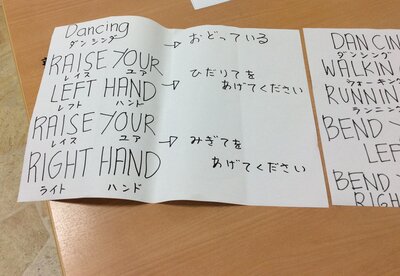 Dancing
ダンシング
→ おどっている
RAISE YOUR
レイズ ユア
→ ひだりてを
LEFT HAND
あげてください
レフト ハンド
RAISE YOUR
レイズ ユア
→ みぎてを
RIGHT HAND
あげてください
ライト ハンド
DANCIN
ダンシング
WALKIN
ウォーキング
RUNNIN
ランニング
BEND
LE
BEND
RIG